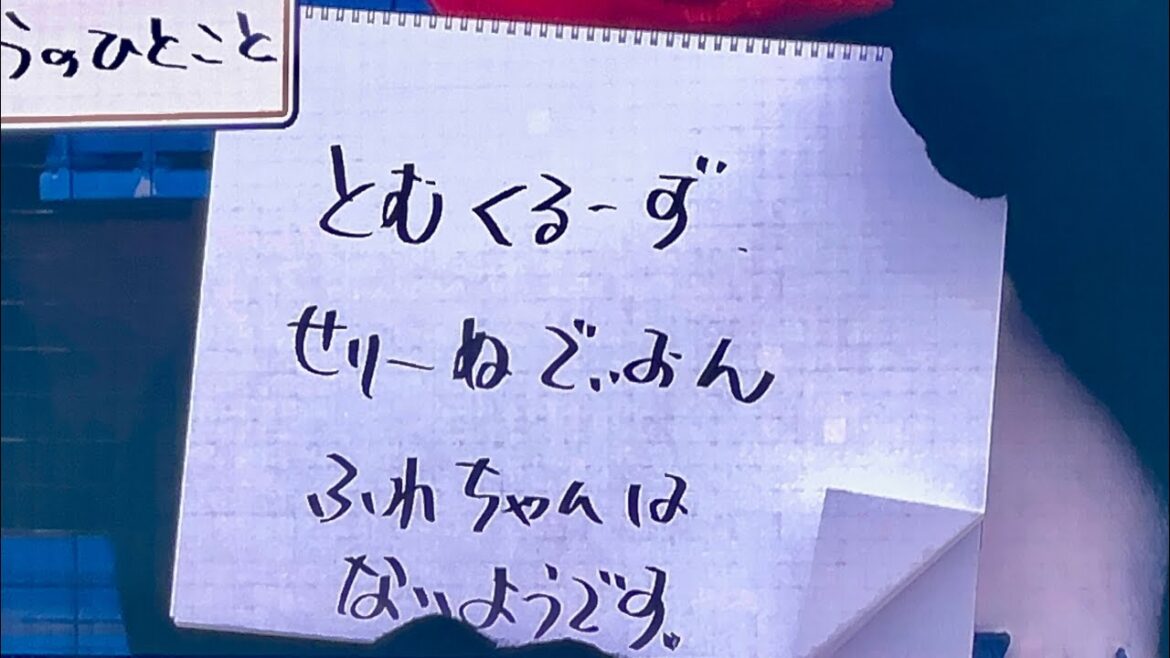 うのひとこと
とむくるーず
せりーぬでぃおん
ふれちゃんは
ないようです。